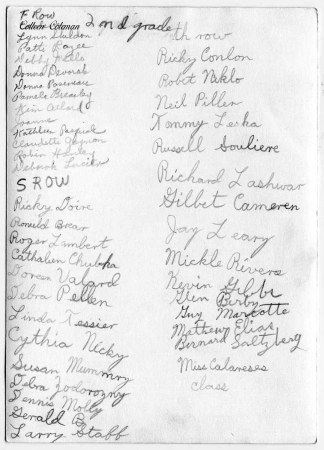 F Row
Colleen Coleman
2nd grade
Lynn Sheldon
Patti
Debby
Donna Devorak
Donna
Pamela Bressby
Kevin
Joanne
Kathleen
Claudette Gagnon
Robin
Deborah Lucier
S ROW
Rickey Doire
Ronald Brear
Roger Lambert
Cathaleen Chulska
Doreen Valard
Debra Pellen
Linda Tessier
Cythia Nicky
Susan Mummry
Debra Zodorozny
Dennis Molly
Gerald B
Larry Stabb
th row
Ricky Conlon
Robet Naklo
Neil Piller
Tommy Leska
Russell Souliere
Richard Lashwar
Gilbet Cameren
Jay Leary
Mickle Rivers
Kevin Gibbs
Glen Berby
Guy Marcotte
Mathew Elias
Bernard Saltzberg
Miss Calaneses
class